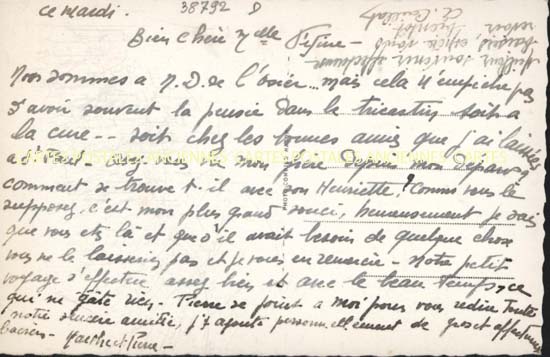 ce mardi.
38792 D
Bien Chère Melle Fifine -
Nous sommes a N.D. de l'osier... mais cela n'empêche pas
d'avoir souvent la pensée dans le tricastin soit a
la cure -- soit chez les bonnes amies que j'ai laissées
a St Paul. Avez vous vu mon frère depuis mon départ?
comment se trouve t-il avec son Henriette? Comme vous le
supposez, c'est mon plus grand souci, heureusement je sais
que vous etes là et que s'il avait besoin de quelque chose
vous ne le laisseriez pas et je vous en remercie - Notre petit
voyage s'effectue assez bien et avec le beau temps, ce
qui ne gâte rien - Pierre se joint a moi pour vous redire toute
notre sincère amitié, j'y ajoute personnellement de gros et affectueux
baisers -
Meilleur souvenir
encore vous
revoir bientôt